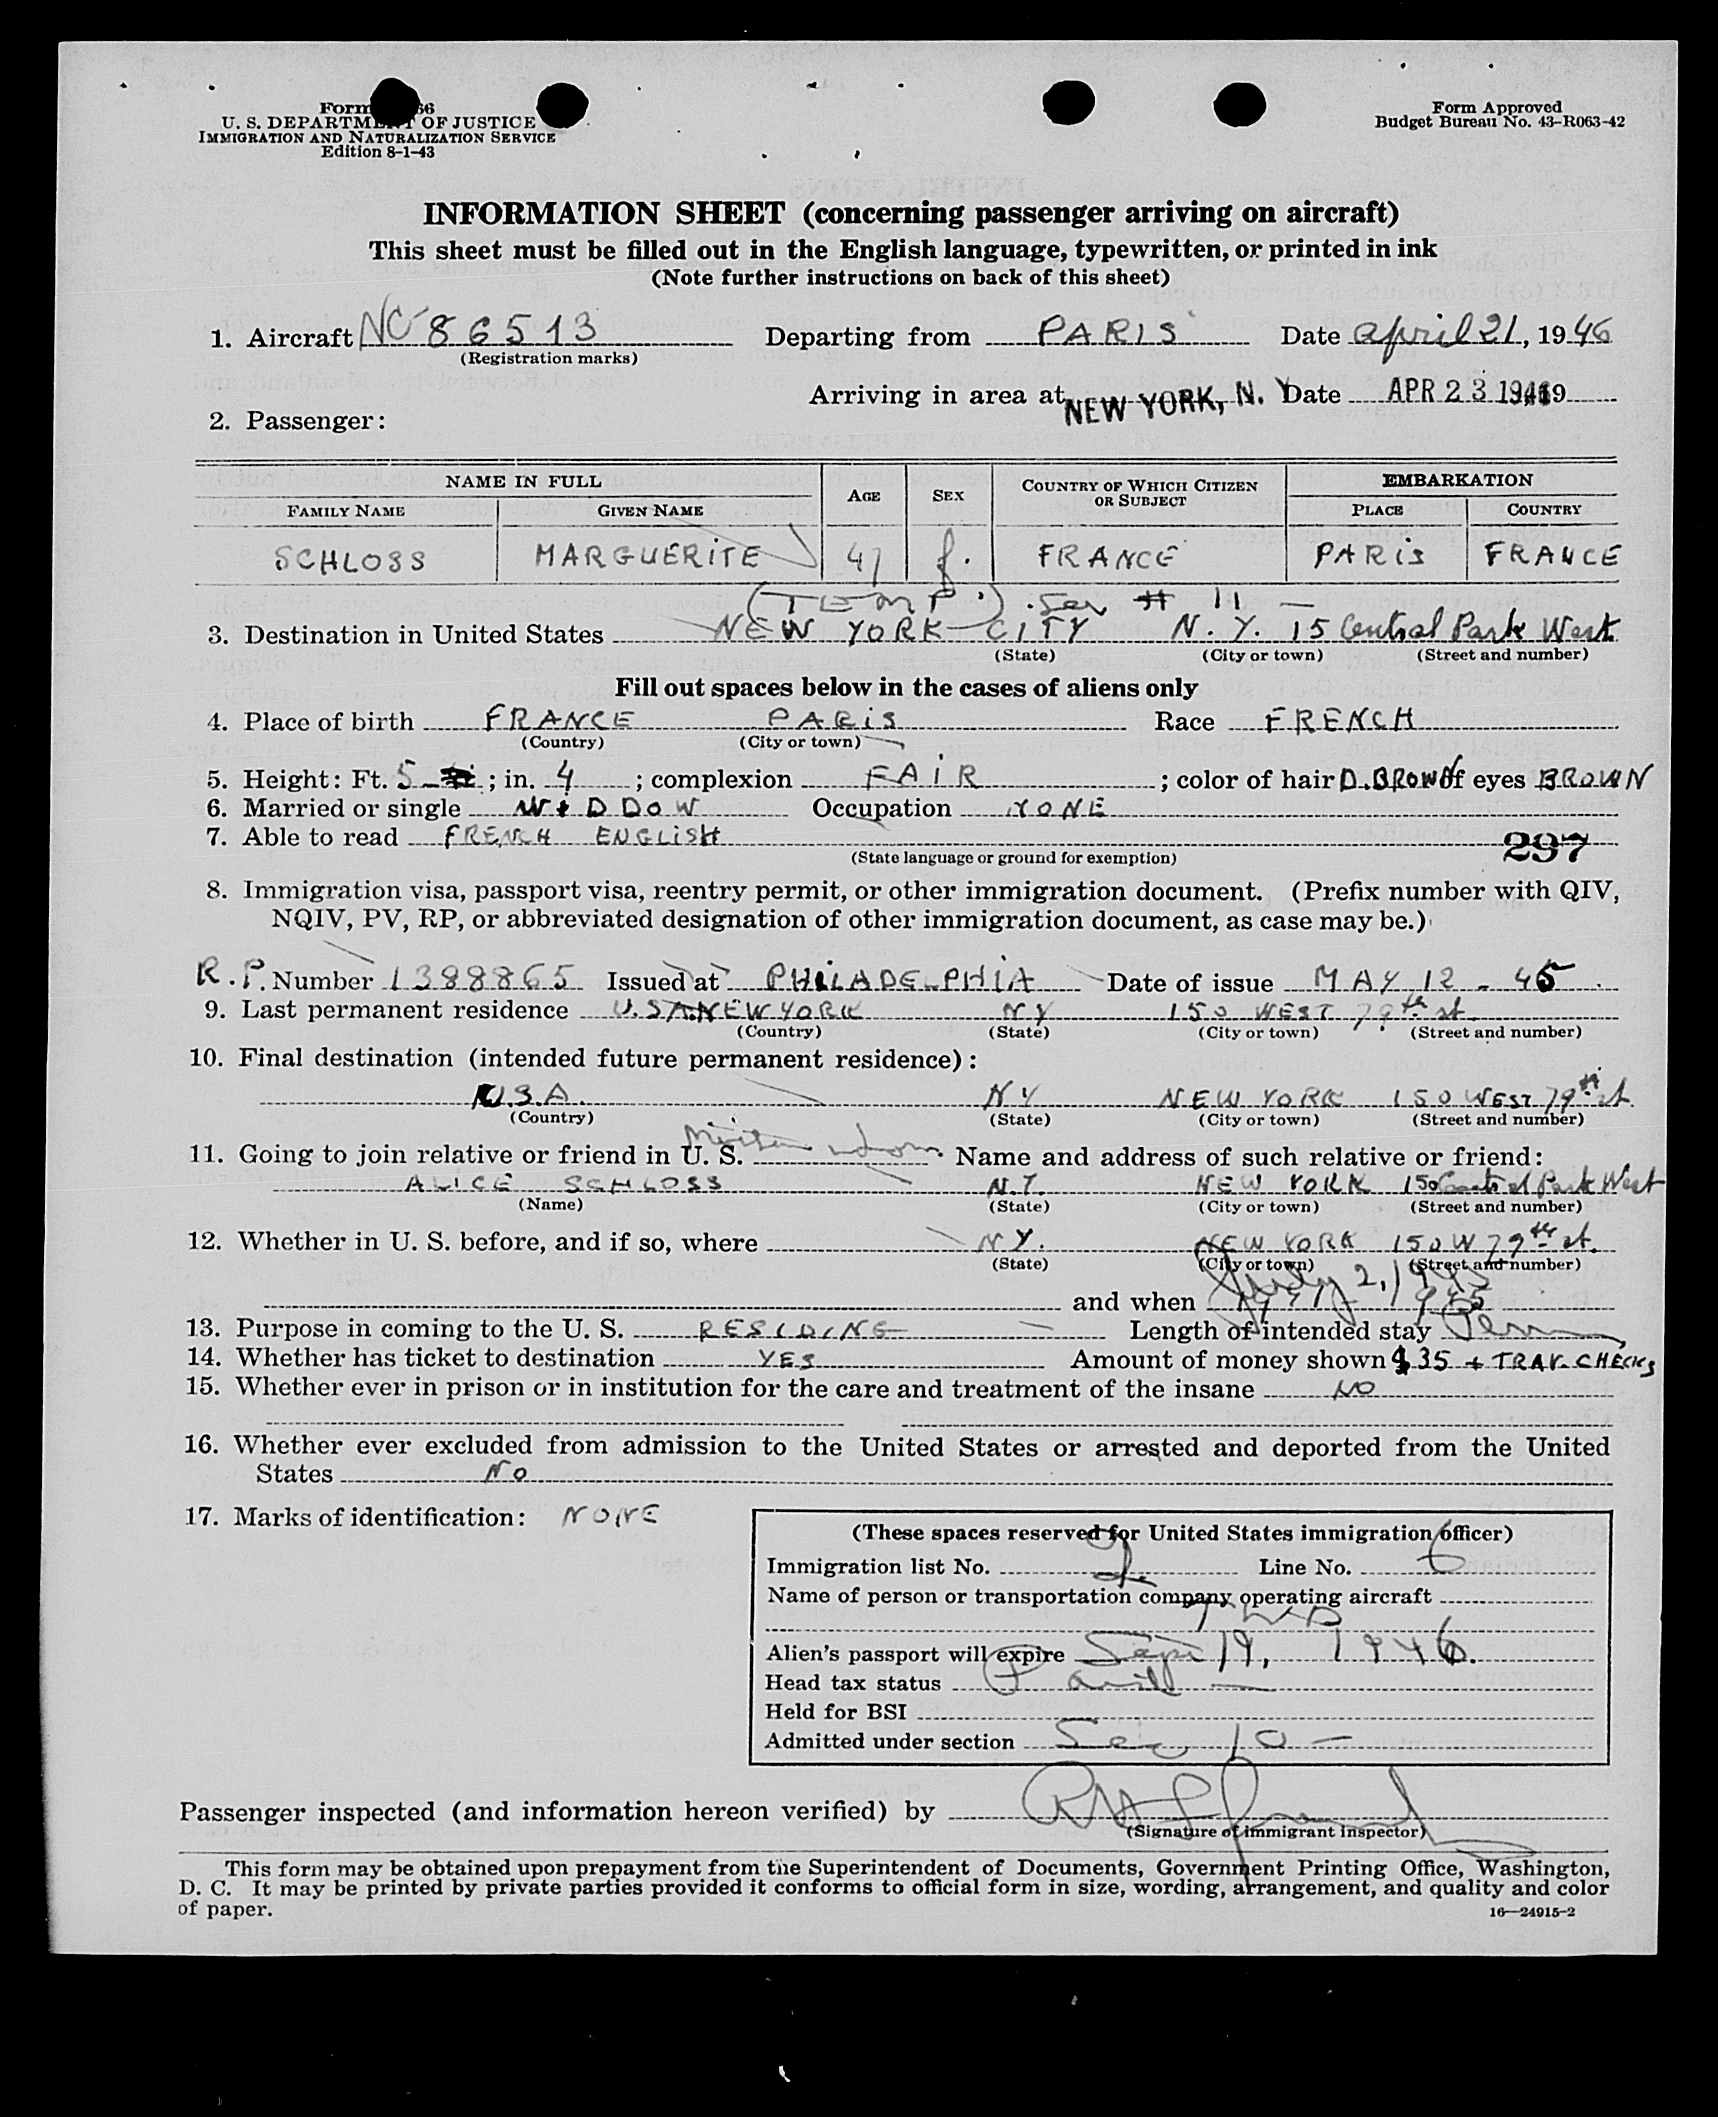 Form 66
U. S. DEPARTMENT OF JUSTICE
IMMIGRATION AND NATURALIZATION SERVICE
Edition 8-1-43
Form Approved
Budget Bureau No. 43-R063-42
INFORMATION SHEET (concerning passenger arriving on aircraft)
This sheet must be filled out in the English language, typewritten, or printed in ink
(Note further instructions on back of this sheet)
1. Aircraft NC 86513 Departing from PARIS Date april 21, 1946
(Registration marks)
Arriving in area at NEW YORK, N. Y. Date APR 23 1946 19
2. Passenger:
NAME IN FULL AGE SEX COUNTRY OF WHICH CITIZEN OR SUBJECT EMBARKATION
FAMILY NAME GIVEN NAME PLACE COUNTRY
SCHLOSS MARGUERITE 47 f. FRANCE PARIS FRANCE
(TEMP.) Sev # 11 —
3. Destination in United States NEW YORK CITY N. Y. 15 Central Park West
(State) (City or town) (Street and number)
Fill out spaces below in the cases of aliens only
4. Place of birth FRANCE PARIS Race FRENCH
(Country) (City or town)
5. Height: Ft. 5 ; in. 4 ; complexion FAIR ; color of hair D. BROWN of eyes BROWN
6. Married or single WIDDOW Occupation NONE
7. Able to read FRENCH ENGLISH
(State language or ground for exemption) 297
8. Immigration visa, passport visa, reentry permit, or other immigration document. (Prefix number with QIV,
NQIV, PV, RP, or abbreviated designation of other immigration document, as case may be.)
R.P. Number 1388865 Issued at PHILADELPHIA Date of issue MAY 12 - 45
9. Last permanent residence U.S.A. NEW YORK NY 150 WEST 79th st.
(Country) (State) (City or town) (Street and number)
10. Final destination (intended future permanent residence):
U.S.A. NY NEW YORK 150 WEST 79th st.
(Country) (State) (City or town) (Street and number)
11. Going to join relative or friend in U. S. Name and address of such relative or friend:
ALICE SCHLOSS N.Y. NEW YORK 15 Central Park West
(Name) (State) (City or town) (Street and number)
12. Whether in U. S. before, and if so, where NY. NEW YORK 150 W 79th st.
(State) (City or town) (Street and number)
and when July 2, 1945
13. Purpose in coming to the U. S. RESIDING Length of intended stay Perm
14. Whether has ticket to destination YES Amount of money shown $ 35 + TRAV. CHECKS
15. Whether ever in prison or in institution for the care and treatment of the insane NO
16. Whether ever excluded from admission to the United States or arrested and deported from the United
States NO
17. Marks of identification: NONE
(These spaces reserved for United States immigration officer)
Immigration list No. 2 Line No. 6
Name of person or transportation company operating aircraft
TWA
Alien's passport will expire Sept 19, 1946.
Head tax status
Held for BSI
Admitted under section Sec 10 —
Passenger inspected (and information hereon verified) by
(Signature of immigrant inspector)
This form may be obtained upon prepayment from the Superintendent of Documents, Government Printing Office, Washington,
D. C. It may be printed by private parties provided it conforms to official form in size, wording, arrangement, and quality and color
of paper.
16—24915-2